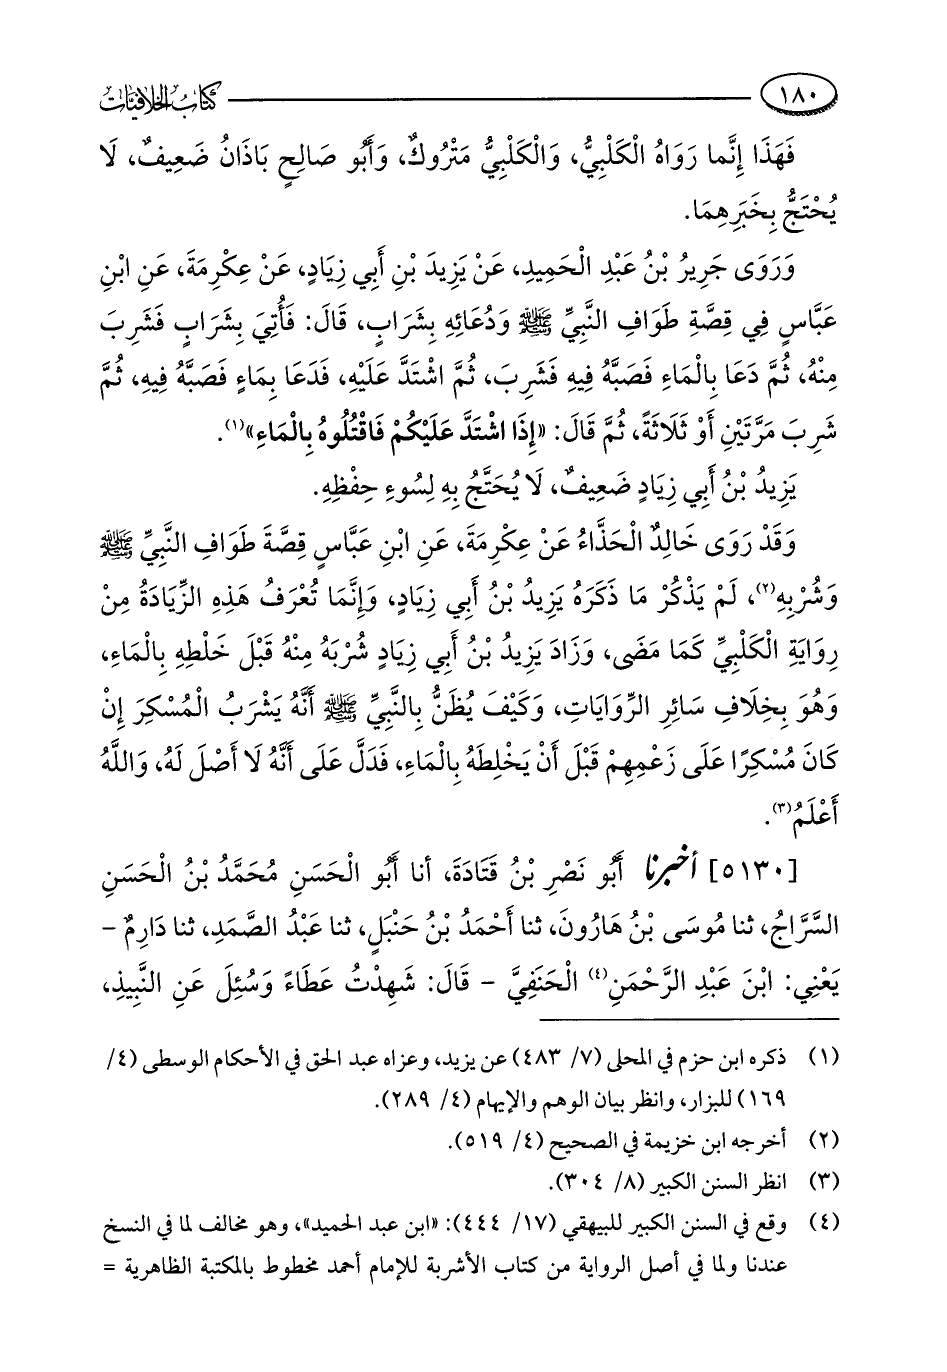 ١٨٠ كتاب الخلافيات
فَهَذَا إِنَّما رَوَاهُ الْكَلْبِيُّ، وَالْكَلْبِيُّ مَتْرُوكٌ، وَأَبُو صَالِحٍ بَاذَانُ ضَعِيفٌ، لَا
يُحْتَجُّ بِخَبَرِهِمَا.
وَرَوَى جَرِيرُ بْنُ عَبْدِ الْحَمِيدِ، عَنْ يَزِيدَ بْنِ أَبِي زِيَادٍ، عَنْ عِكْرِمَةَ، عَنِ ابْنِ
عَبَّاسٍ فِي قِصَّةِ طَوَافِ النَّبِيِّ ﷺ وَدُعَائِهِ بِشَرَابٍ، قَالَ: فَأُتِيَ بِشَرَابٍ فَشَرِبَ
مِنْهُ، ثُمَّ دَعَا بِالْمَاءِ فَصَبَّهُ فِيهِ فَشَرِبَ، ثُمَّ اشْتَدَّ عَلَيْهِ، فَدَعَا بِمَاءٍ فَصَبَّهُ فِيهِ، ثُمَّ
شَرِبَ مَرَّتَيْنِ أَوْ ثَلَاثَةً، ثُمَّ قَالَ: «إِذَا اشْتَدَّ عَلَيْكُمْ فَاقْتُلُوهُ بِالْمَاءِ»(١).
يَزِيدُ بْنُ أَبِي زِيَادٍ ضَعِيفٌ، لَا يُحْتَجُّ بِهِ لِسُوءِ حِفْظِهِ.
وَقَدْ رَوَى خَالِدٌ الْحَذَّاءُ عَنْ عِكْرِمَةَ، عَنِ ابْنِ عَبَّاسٍ قِصَّةَ طَوَافِ النَّبِيِّ ﷺ
وَشُرْبِهِ(٢)، لَمْ يَذْكُرْ مَا ذَكَرَهُ يَزِيدُ بْنُ أَبِي زِيَادٍ، وَإِنَّمَا تُعْرَفُ هَذِهِ الزِّيَادَةُ مِنْ
رِوَايَةِ الْكَلْبِيِّ كَمَا مَضَى، وَزَادَ يَزِيدُ بْنُ أَبِي زِيَادٍ شُرْبَهُ مِنْهُ قَبْلَ خَلْطِهِ بِالْمَاءِ،
وَهُوَ بِخِلَافِ سَائِرِ الرِّوَايَاتِ، وَكَيْفَ يُظَنُّ بِالنَّبِيِّ ﷺ أَنَّهُ يَشْرَبُ الْمُسْكِرَ إِنْ
كَانَ مُسْكِرًا عَلَى زَعْمِهِمْ قَبْلَ أَنْ يَخْلِطَهُ بِالْمَاءِ، فَدَلَّ عَلَى أَنَّهُ لَا أَصْلَ لَهُ، وَاللَّهُ
أَعْلَمُ(٣).
[٥١٣٠] أخبرنا أَبُو نَصْرِ بْنُ قَتَادَةَ، أنا أَبُو الْحَسَنِ مُحَمَّدُ بْنُ الْحَسَنِ
السَّرَّاجُ، ثنا مُوسَى بْنُ هَارُونَ، ثنا أَحْمَدُ بْنُ حَنْبَلٍ، ثنا عَبْدُ الصَّمَدِ، ثنا دَارِمٌ -
يَعْنِي: ابْنَ عَبْدِ الرَّحْمَنِ(٤) الْحَنَفِيَّ - قَالَ: شَهِدْتُ عَطَاءً وَسُئِلَ عَنِ النَّبِيذِ،
(١) ذكره ابن حزم في المحلى (٧/ ٤٨٣) عن يزيد، وعزاه عبد الحق في الأحكام الوسطى (٤/
١٦٩) للبزار، وانظر بيان الوهم والإيهام (٤/ ٢٨٩).
(٢) أخرجه ابن خزيمة في الصحيح (٤/ ٥١٩).
(٣) انظر السنن الكبير (٨/ ٣٠٤).
(٤) وقع في السنن الكبير للبيهقي (١٧/ ٤٤٤): «ابن عبد الحميد»، وهو مخالف لما في النسخ
عندنا ولما في أصل الرواية من كتاب الأشربة للإمام أحمد مخطوط بالمكتبة الظاهرية =